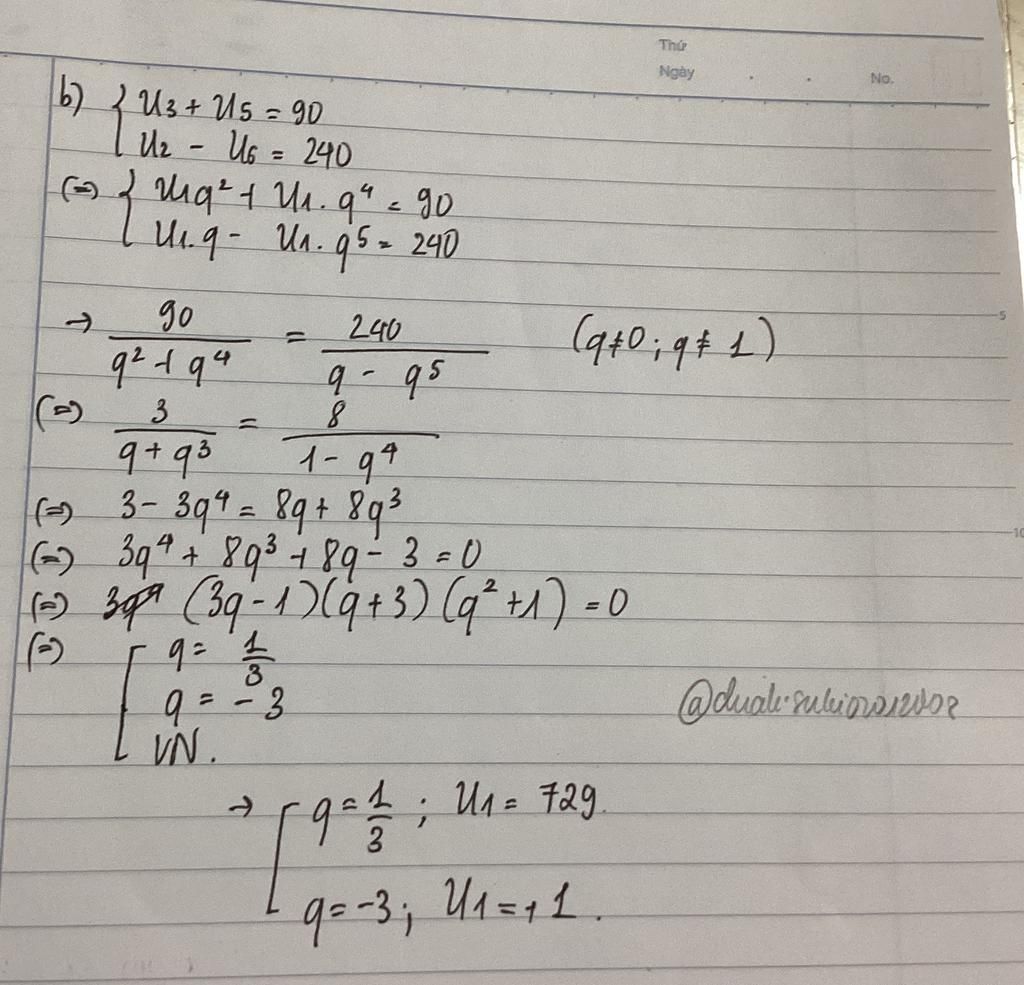 Thứ
Ngày . . No.
b) { U3 + U5 = 90
U2 - U6 = 240
(=) { U1q² + U1.q⁴ = 90
U1.q - U1.q⁵ = 240
→ 90/(q² + q⁴) = 240/(q - q⁵) (q≠0; q≠1)
5
(=) 3/(q + q³) = 8/(1 - q⁴)
(=) 3 - 3q⁴ = 8q + 8q³
10
(=) 3q⁴ + 8q³ + 8q - 3 = 0
(=) (3q-1)(q+3)(q²+1) = 0
(=) [ q = 1/3
q = -3
VN.
→ [ q = 1/3 ; U1 = 729.
q = -3; U1 = +1.